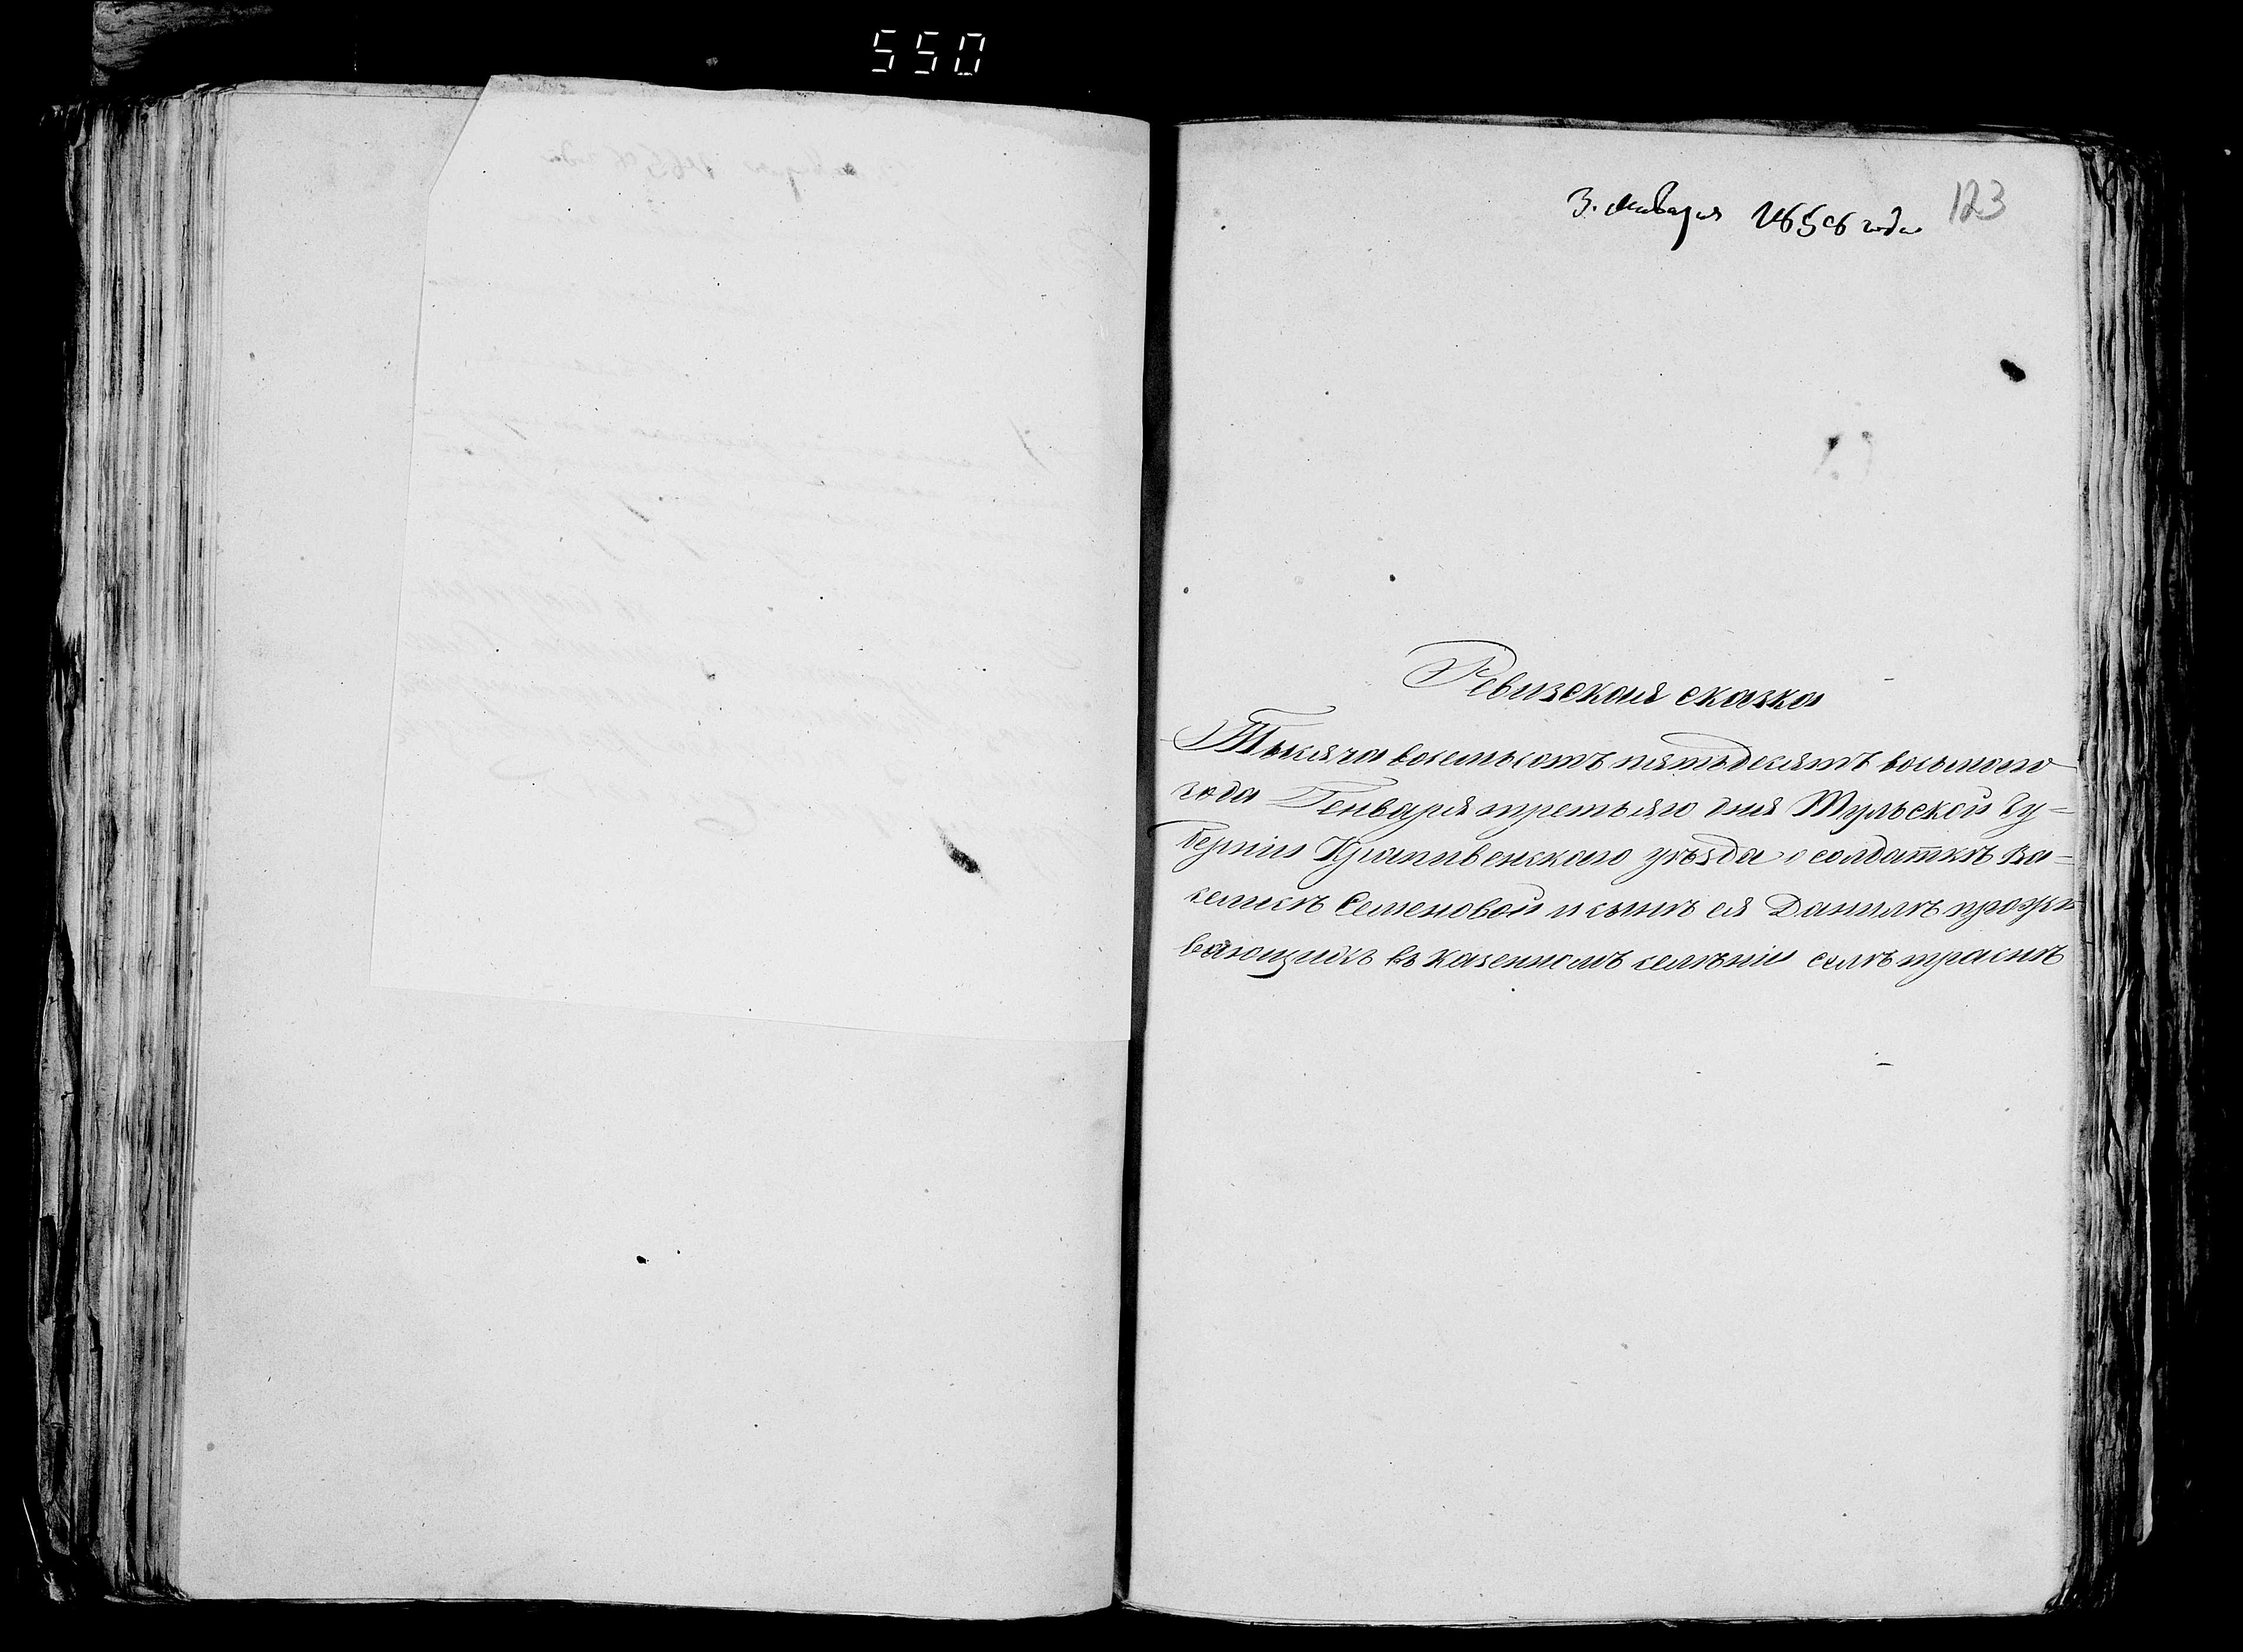 550
3. января 1858 года 123
Ревизская сказка
Тысяча восемьсотъ пятьдесятъ восьмого
года Генваря третьяго дня Тульской Гу=
берніи Крапивенскаго уѣзда о солдаткѣ Ва=
селисѣ Семеновой и сынѣ ея Данилѣ прожи
вающихъ въ казенномъ селѣніи селѣ